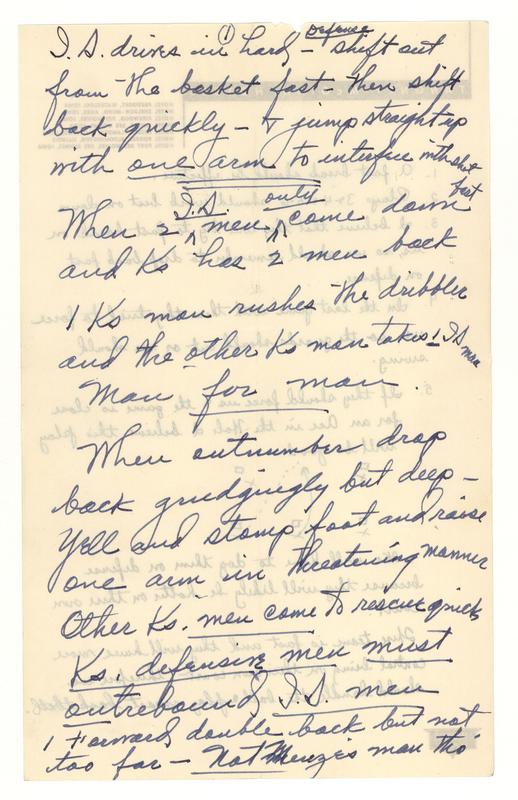 I.S. drives in ① hard, - Defense shift out
from the basket fast - then shift
back quickly - & jump straight up
with one arm to interfere with shot
fast
When 2 I.S. men only come down
and Ks has 2 men back
1 Ks man rushes the dribbler
and the other Ks man takes 1 I.S
man
Man for man.
When outnumber drop
back grudgingly but deep -
Yell and stomp foot and raise
one arm in threatening manner
Other Ks. men come to rescue quick
Ks. defensive men must
outrebound I.S. men
1 Forward double back but not
too far - Not Menzies man tho'